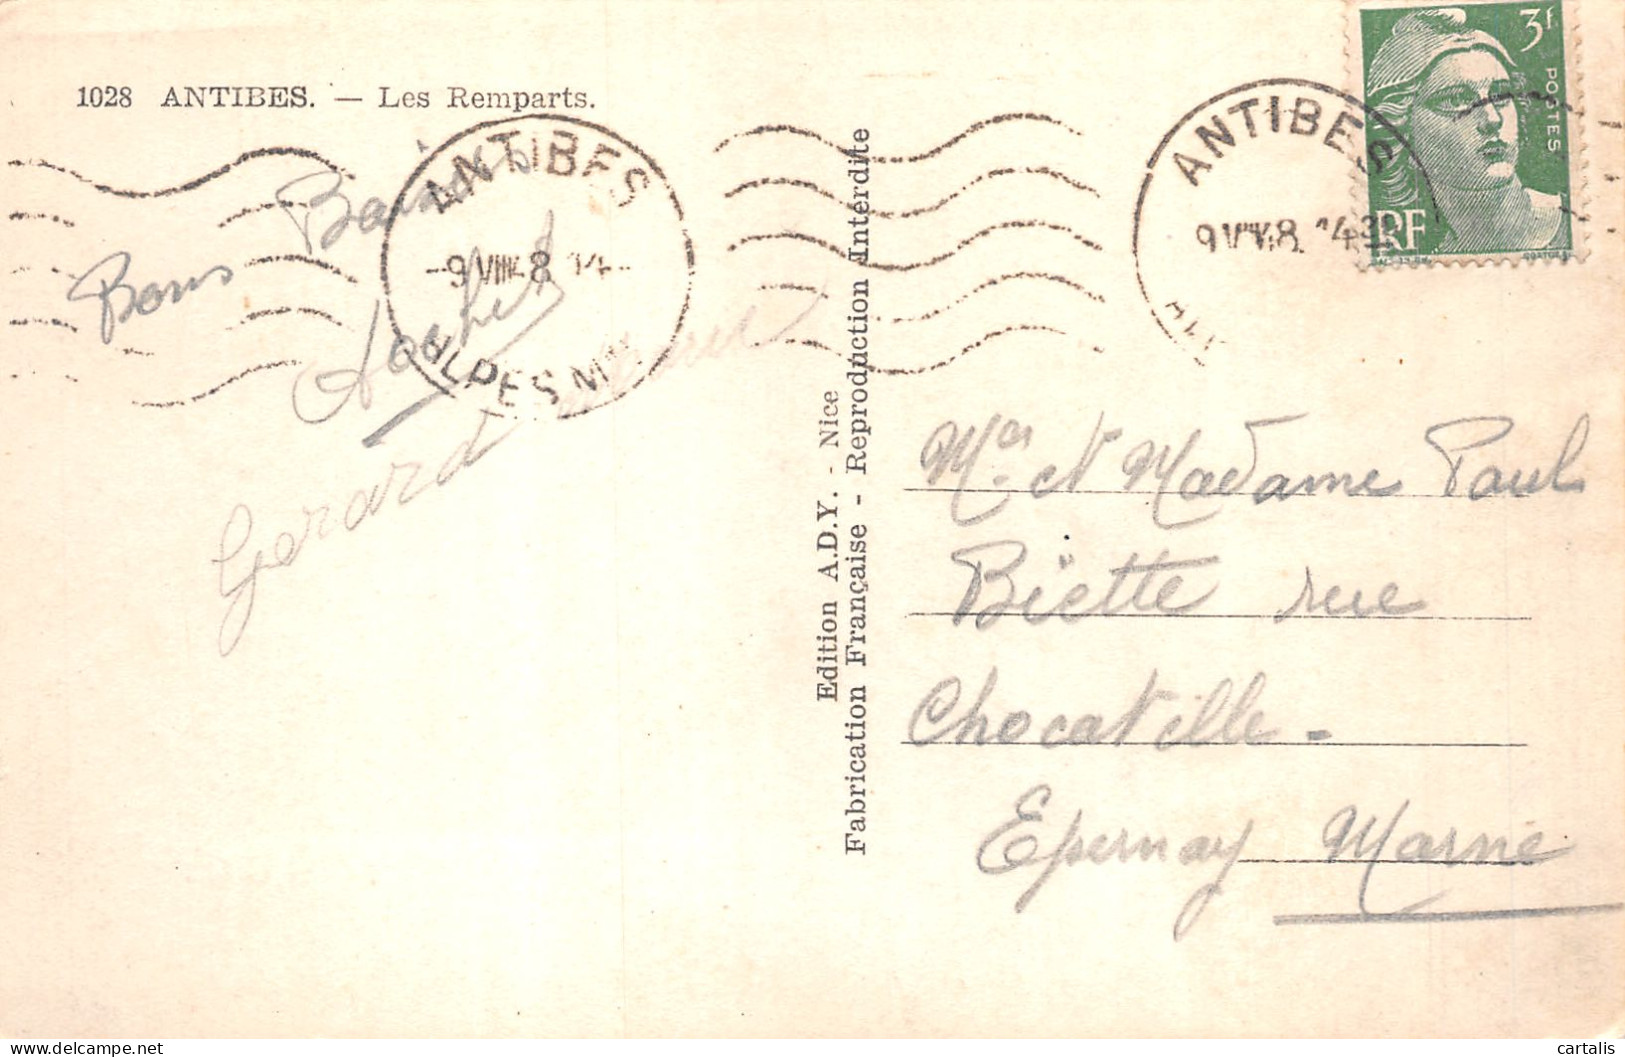 1028 ANTIBES. — Les Remparts.
Bons Baisers
Gérard
ANTIBES
-9 VIII 48 14-
ALPES Mmes
Edition A.D.Y. - Nice
Fabrication Française - Reproduction Interdite
ANTIBES
9 VIII 48 14 30
3f
POSTES
RF
Mr et Madame Paul
Biette rue
Chocatelle -
Epernay Marne
cartalis
delcampe.net